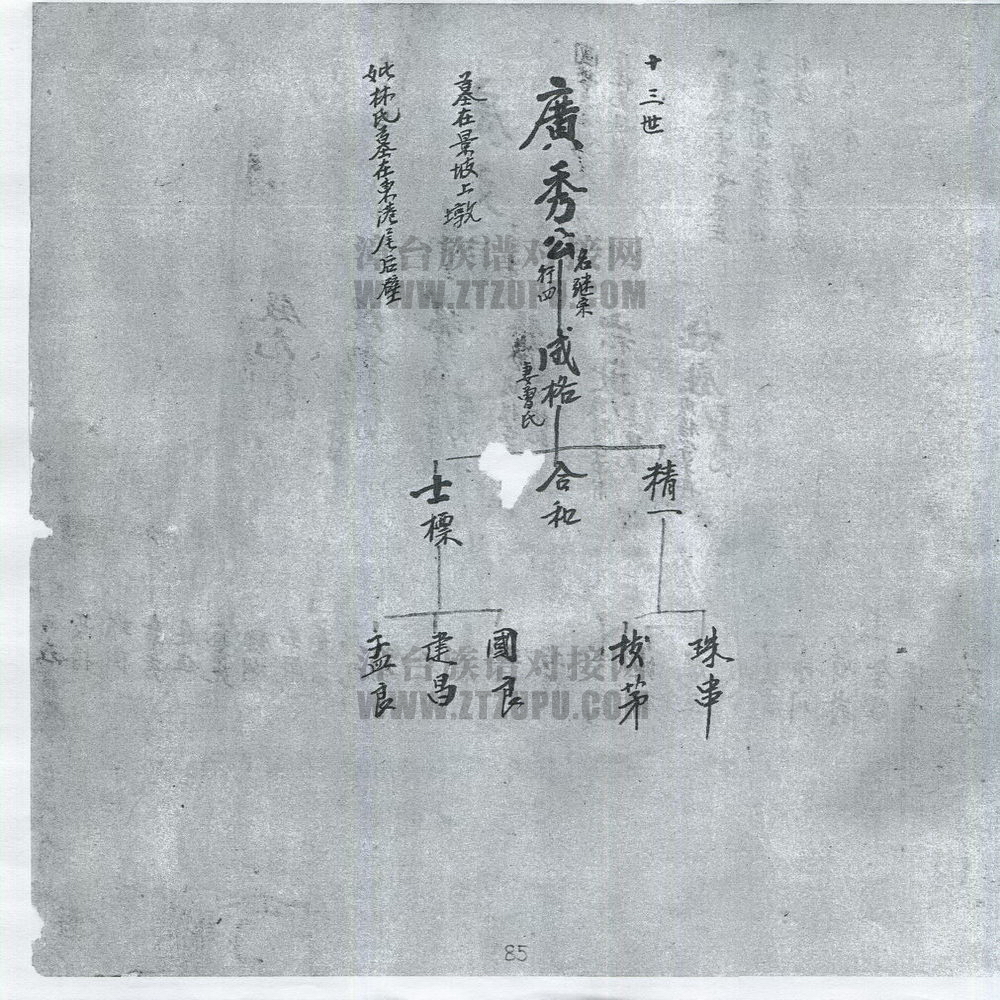 十三世
廣秀公
名継宗
行四
墓在景坡上墩
妣林氏墓在東港尾后壁
成格
妻曾氏
精一
合和
士標
珠串
國良
建昌
孟良
漳台族谱对接网
WWW.ZTZUPU.COM
漳台族谱对接网
WWW.ZTZUPU.COM
85